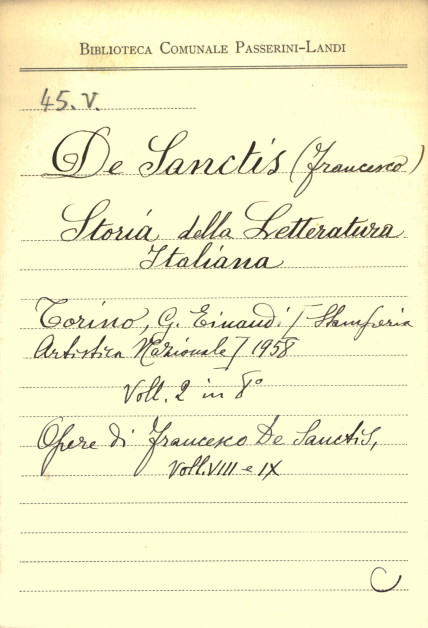 BIBLIOTECA COMUNALE PASSERINI-LANDI
45. V.
De Sanctis (Francesco)
Storia della Letteratura
Italiana
Torino, G. Einaudi [Stamperia
Artistica Nazionale] 1958
Voll. 2 in 8°
Opere di Francesco De Sanctis,
Voll. VIII e IX
C